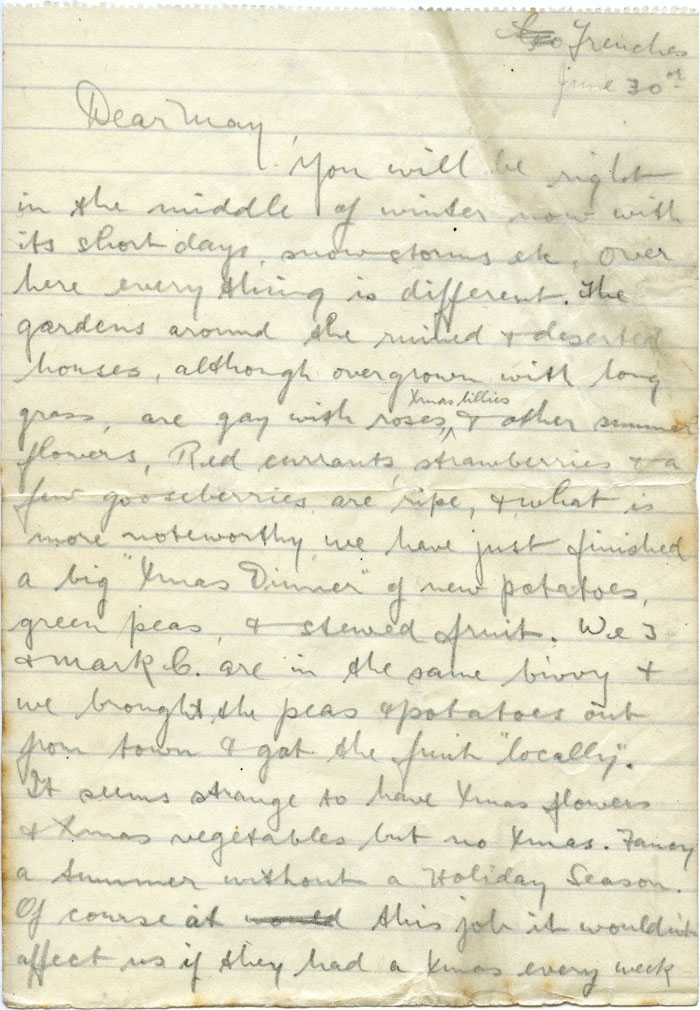 Trenches
June 30th
Dear May,
You will be right
in the middle of winter now with
its short days, snowstorms etc, over
here everything is different. The
gardens around the ruined & deserted
houses, although overgrown with long
Xmas lillies
grass, are gay with roses, & other summer
flowers, Red currants, strawberries & a
few gooseberries are ripe, & what is
more noteworthy we have just finished
a big "Xmas Dinner" of new potatoes,
green peas, & stewed fruit. We 3
& Mark C. are in the same bivvy &
we brought the peas & potatoes out
from town & got the fruit "locally".
It seems strange to have Xmas flowers
& Xmas vegetables but no Xmas. Fancy
a summer without a Holiday Season.
Of course at this job it wouldn't
affect us if they had a Xmas every week